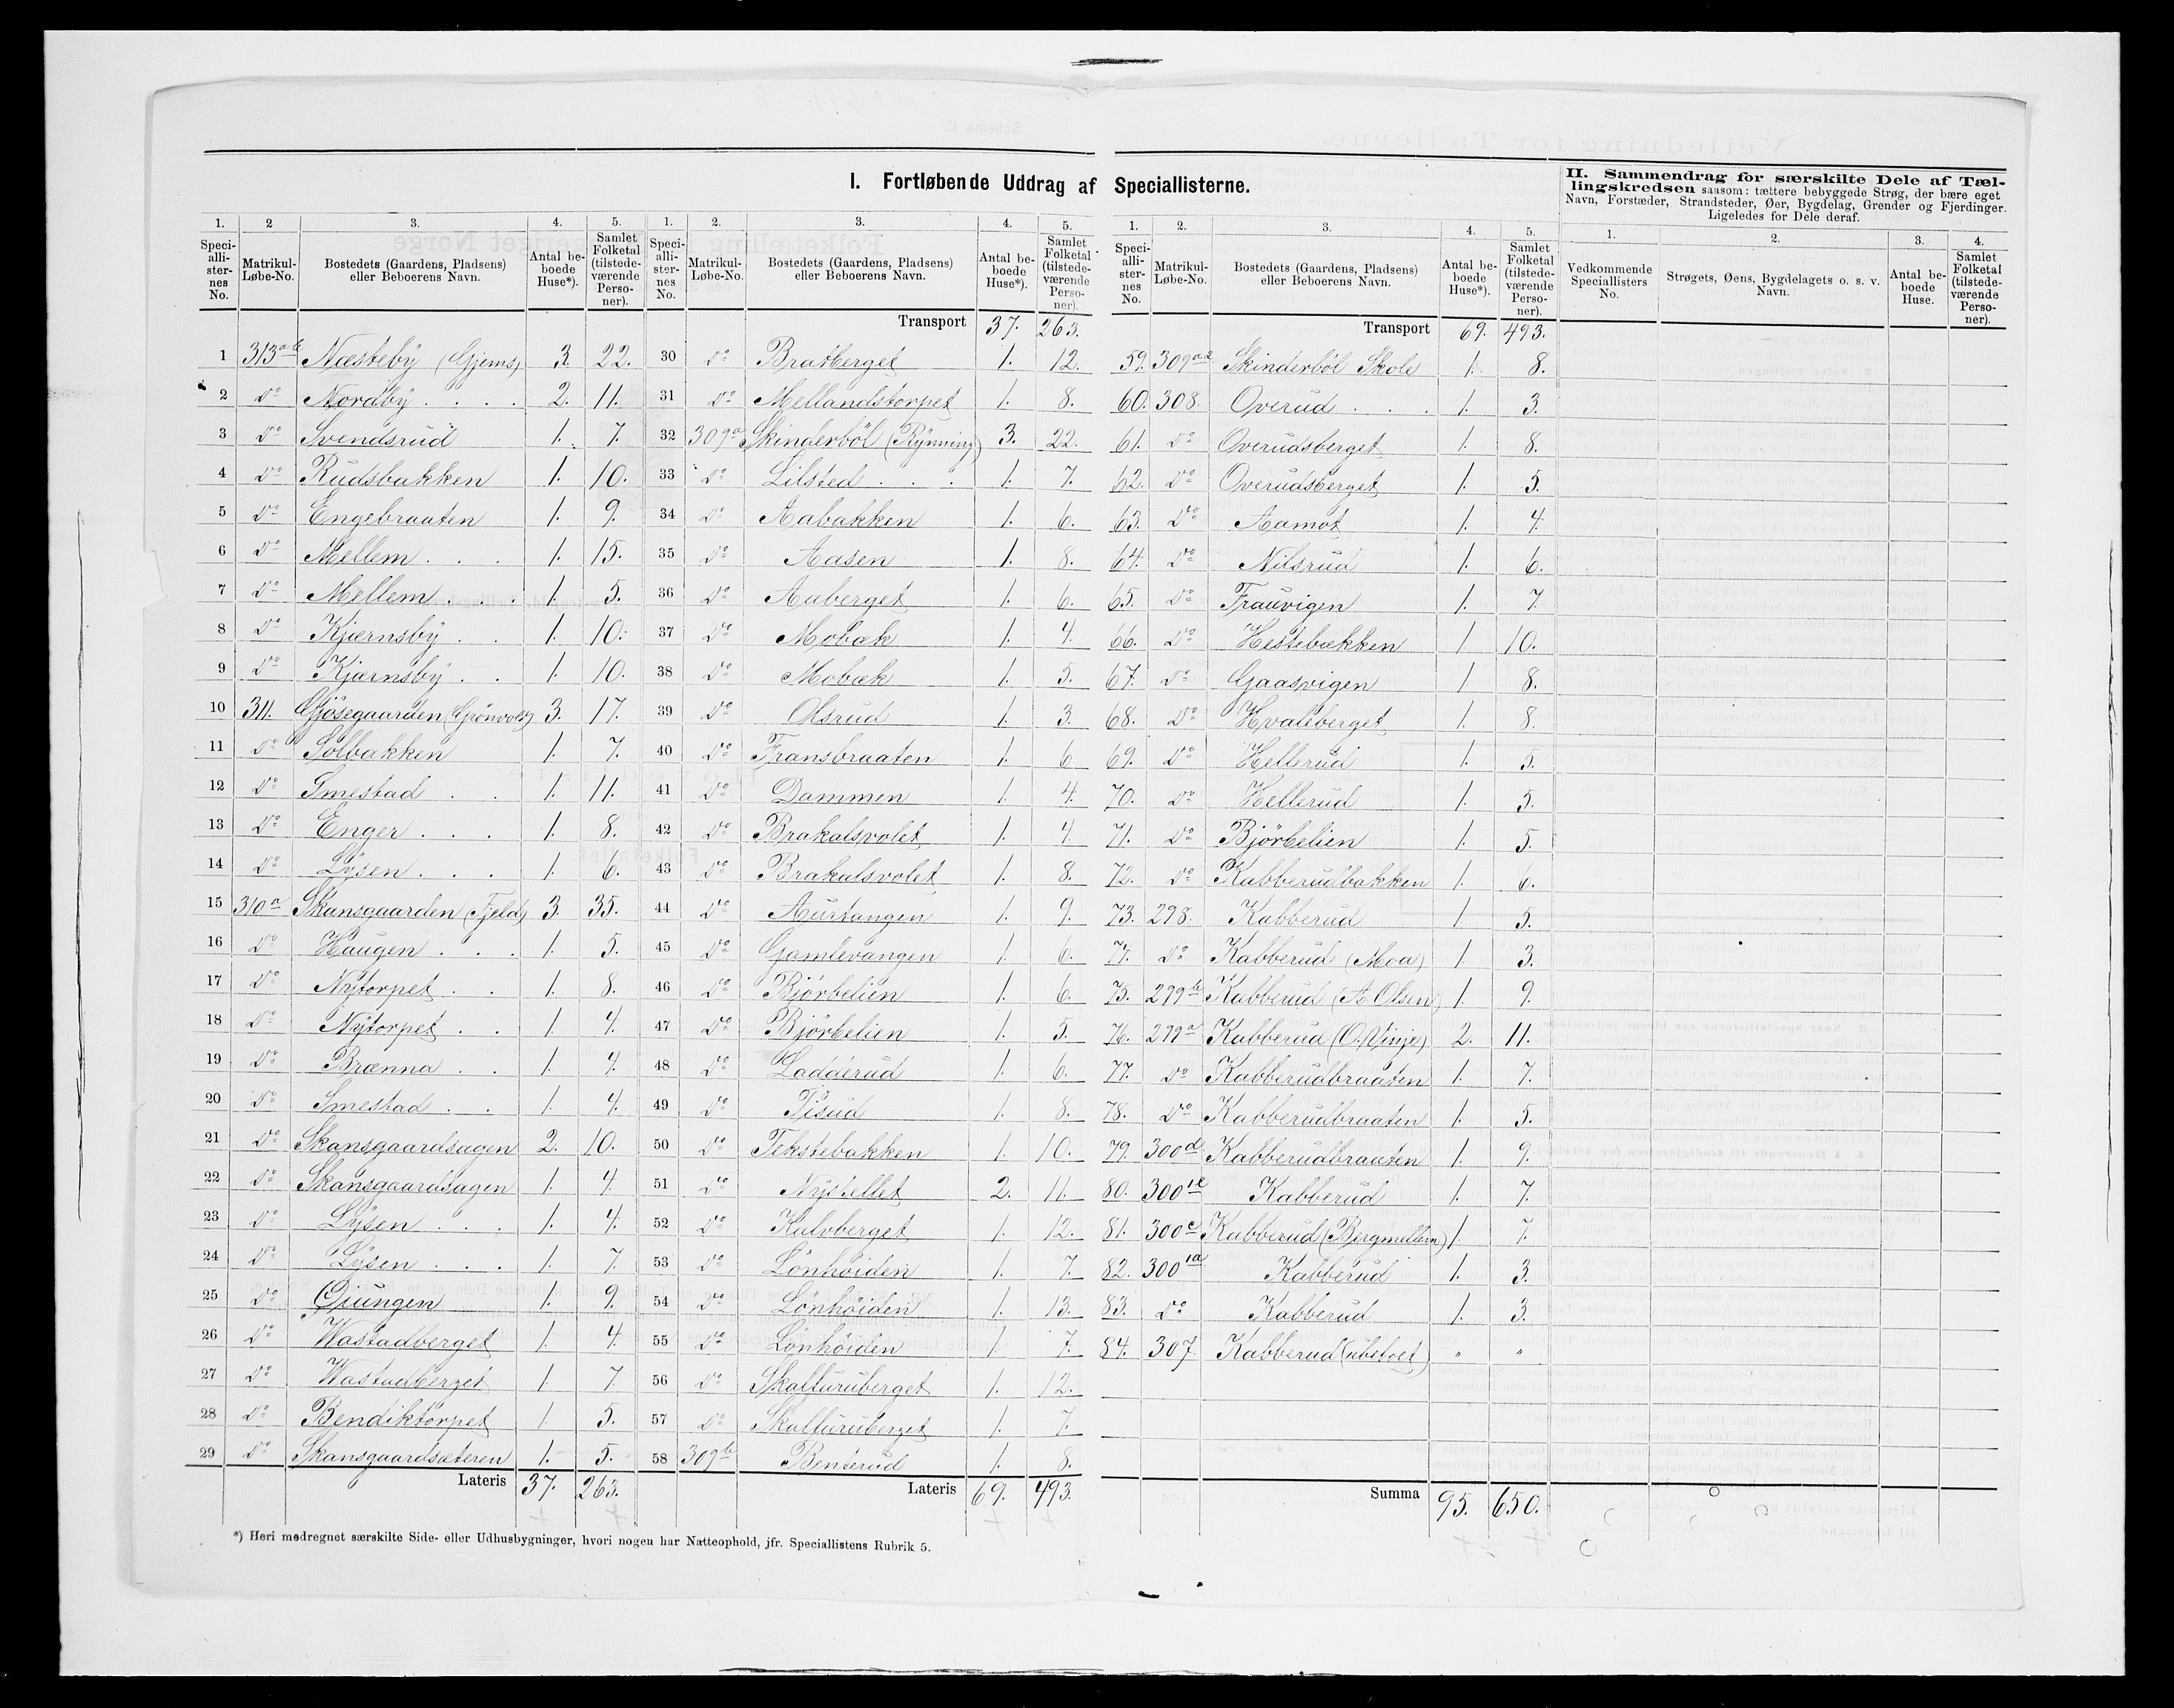 I. Fortløbende Uddrag af Speciallisterne.
II. Sammendrag for særskilte Dele af Tællingskredsen saasom: tættere bebyggede Strøg, der bære eget
Navn, Forstæder, Strandsteder, Øer, Bygdelag, Grender og Fjerdinger.
Ligeledes for Dele deraf.
1. 2 3. 4. 5.
Speciallisternes No. Matrikul-Løbe-No. Bostedets (Gaardens, Pladsens) eller Beboerens Navn. Antal beboede Huse*). Samlet Folketal (tilstedeværende Personer).
1 313ab Næsteby (Gjems) 3. 22.
2 Do Nordby . . . . 2. 11.
3 Do Svendsrud 1. 7.
4 Do Rudsbakken 1. 10.
5 Do Engebraaten 1. 9.
6 Do Mellem . . . 1. 15.
7 Do Mellem . . . 1. 5.
8 Do Kjærnsby . . 1. 10.
9 Do Kjærnsby . . 1. 10.
10 311. Gjøsegaarden (Grønvold) 3. 17.
11 Do Solbakken 1. 7.
12 Do Smestad . . 1. 11.
13 Do Enger . . . 1. 8.
14 Do Lysen . . . 1. 6.
15 310a Skansgaarden (Fjeld) 3. 35.
16 Do Haugen . . . 1. 5.
17 Do Nytorpet . . 1. 8.
18 Do Nytorpet . . 1. 4.
19 Do Brænna . . 1. 4.
20 Do Smestad . . 1. 4.
21 Do Skansgaardsagen 2. 10.
22 Do Skansgaardsagen 1. 4.
23 Do Lysen . . . 1. 4.
24 Do Lysen . . . 1. 7.
25 Do 1. 9.
26 Do Wastadberget 1. 4.
27 Do Wastadberget 1. 7.
28 Do Bendiktorpet 1. 5.
29 Do Skansgaardsæteren 1. 5.
Lateris 37. 263.
1. 2. 3. 4. 5.
Speciallisternes No. Matrikul-Løbe-No. Bostedets (Gaardens, Pladsens) eller Beboerens Navn. Antal beboede Huse*). Samlet Folketal (tilstedeværende Personer).
Transport 37. 263.
30 Do Bratberget 1. 12.
31 Do Mellandstorpet 1. 8.
32 309a Skinderböl (Rynning) 3. 22.
33 Do Lilsted . . . 1. 7.
34 Do Aabakken 1. 6.
35 Do Aasen 1. 8.
36 Do Aaberget 1. 6.
37 Do Mobæk 1. 4.
38 Do Mobæk 1. 5.
39 Do Olsrud 1. 3.
40 Do Fransbraaten 1. 6
41 Do Dammen 1. 4.
42 Do Brakalsvolet 1. 4.
43 Do Brakulsvolet 1. 8.
44 Do Aurtangen 1. 9.
45 Do Gamlevangen 1. 6.
46 Do Björbelien 1. 6.
47 Do Björbelien 1. 5.
48 Do Ladderud 1. 6.
49 Do Tisud 1. 8.
50 Do Tekstebakken 1. 10.
51 Do Nystellet 2. 11.
52 Do Kulvberget 1. 12.
53 Do Lönhöiden 1. 7.
54 Do Lönhöiden 1. 13.
55 Do Lönhöiden 1. 7.
56 Do Skalfuruberget 1. 12.
57 Do Skalfuruberget 1. 7.
58 309b Benterud 1. 8.
Lateris 69. 493.
1. 2. 3. 4. 5.
Speciallisternes No. Matrikul-Løbe-No. Bostedets (Gaardens, Pladsens) eller Beboerens Navn. Antal beboede Huse*). Samlet Folketal (tilstedeværende Personer).
Transport 69. 493.
59. 309ad Skinderböl Skole 1. 8.
60. 308. Overud . . . 1. 3.
61. Do Overudsberget 1. 8.
62. Do Overudsberget 1. 5.
63. Do Aamot 1. 4.
64. Do Nilsrud 1. 6.
65. Do Frauvigen 1. 7.
66. Do Hestebækken 1 10.
67. Do Gaasvigen 1 8.
68. Do Hvaleberget 1. 8.
69. Do Hellerud 1. 5.
70. Do Hellerud 1. 5.
71. Do Björbelien 1. 5.
72. Do Kabberudbakken 1. 6.
73. 298. Kabberud 1 5.
74. Do Kabberud (Moa) 1 3.
75. 299b Kabberud (A Olsen) 1. 9.
76. 299a Kabberud (O. Vinje) 2. 11.
77. Do Kabberudbraaten 1. 7.
78. Do Kabberudbraaten 1. 5.
79. 300d Kabberudbraaten 1. 9.
80. 300 Kabberud 1. 7.
81. 300c Kabberud (Bergmellem) 1. 7.
82. 300 1a Kabberud 1. 3.
83. Do Kabberud 1. 3.
84. 307. Kabberud (ubeboet) " "
Summa 95. 650.
1. 2. 3. 4.
Vedkommende Speciallisters No. Strøgets, Øens, Bygdelagets o. s. v. Navn. Antal beboede Huse. Samlet Folketal (tilstedeværende Personer).
*) Heri medregnet særskilte Side- eller Udhusbygninger, hvori nogen har Natteophold, jfr. Speciallistens Rubrik 5.